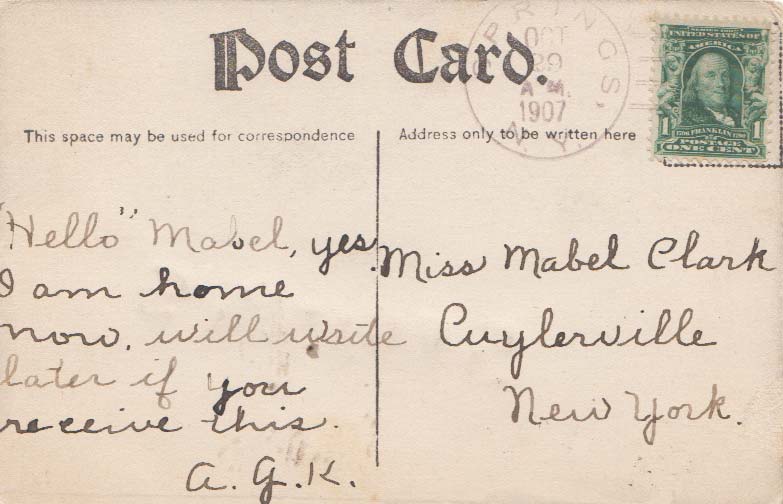 Post Card.
PRINGS,
OCT
29
A M.
1907
N. Y.
SERIES 1902
UNITED STATES OF
AMERICA
1
1706 FRANKLIN 1790
1
POSTAGE
ONE CENT
This space may be used for correspondence
Address only to be written here
"Hello" Mabel, yes.
I am home
now, will write
later if you
receive this.
A. G. K.
Miss Mabel Clark
Cuylerville
New York.